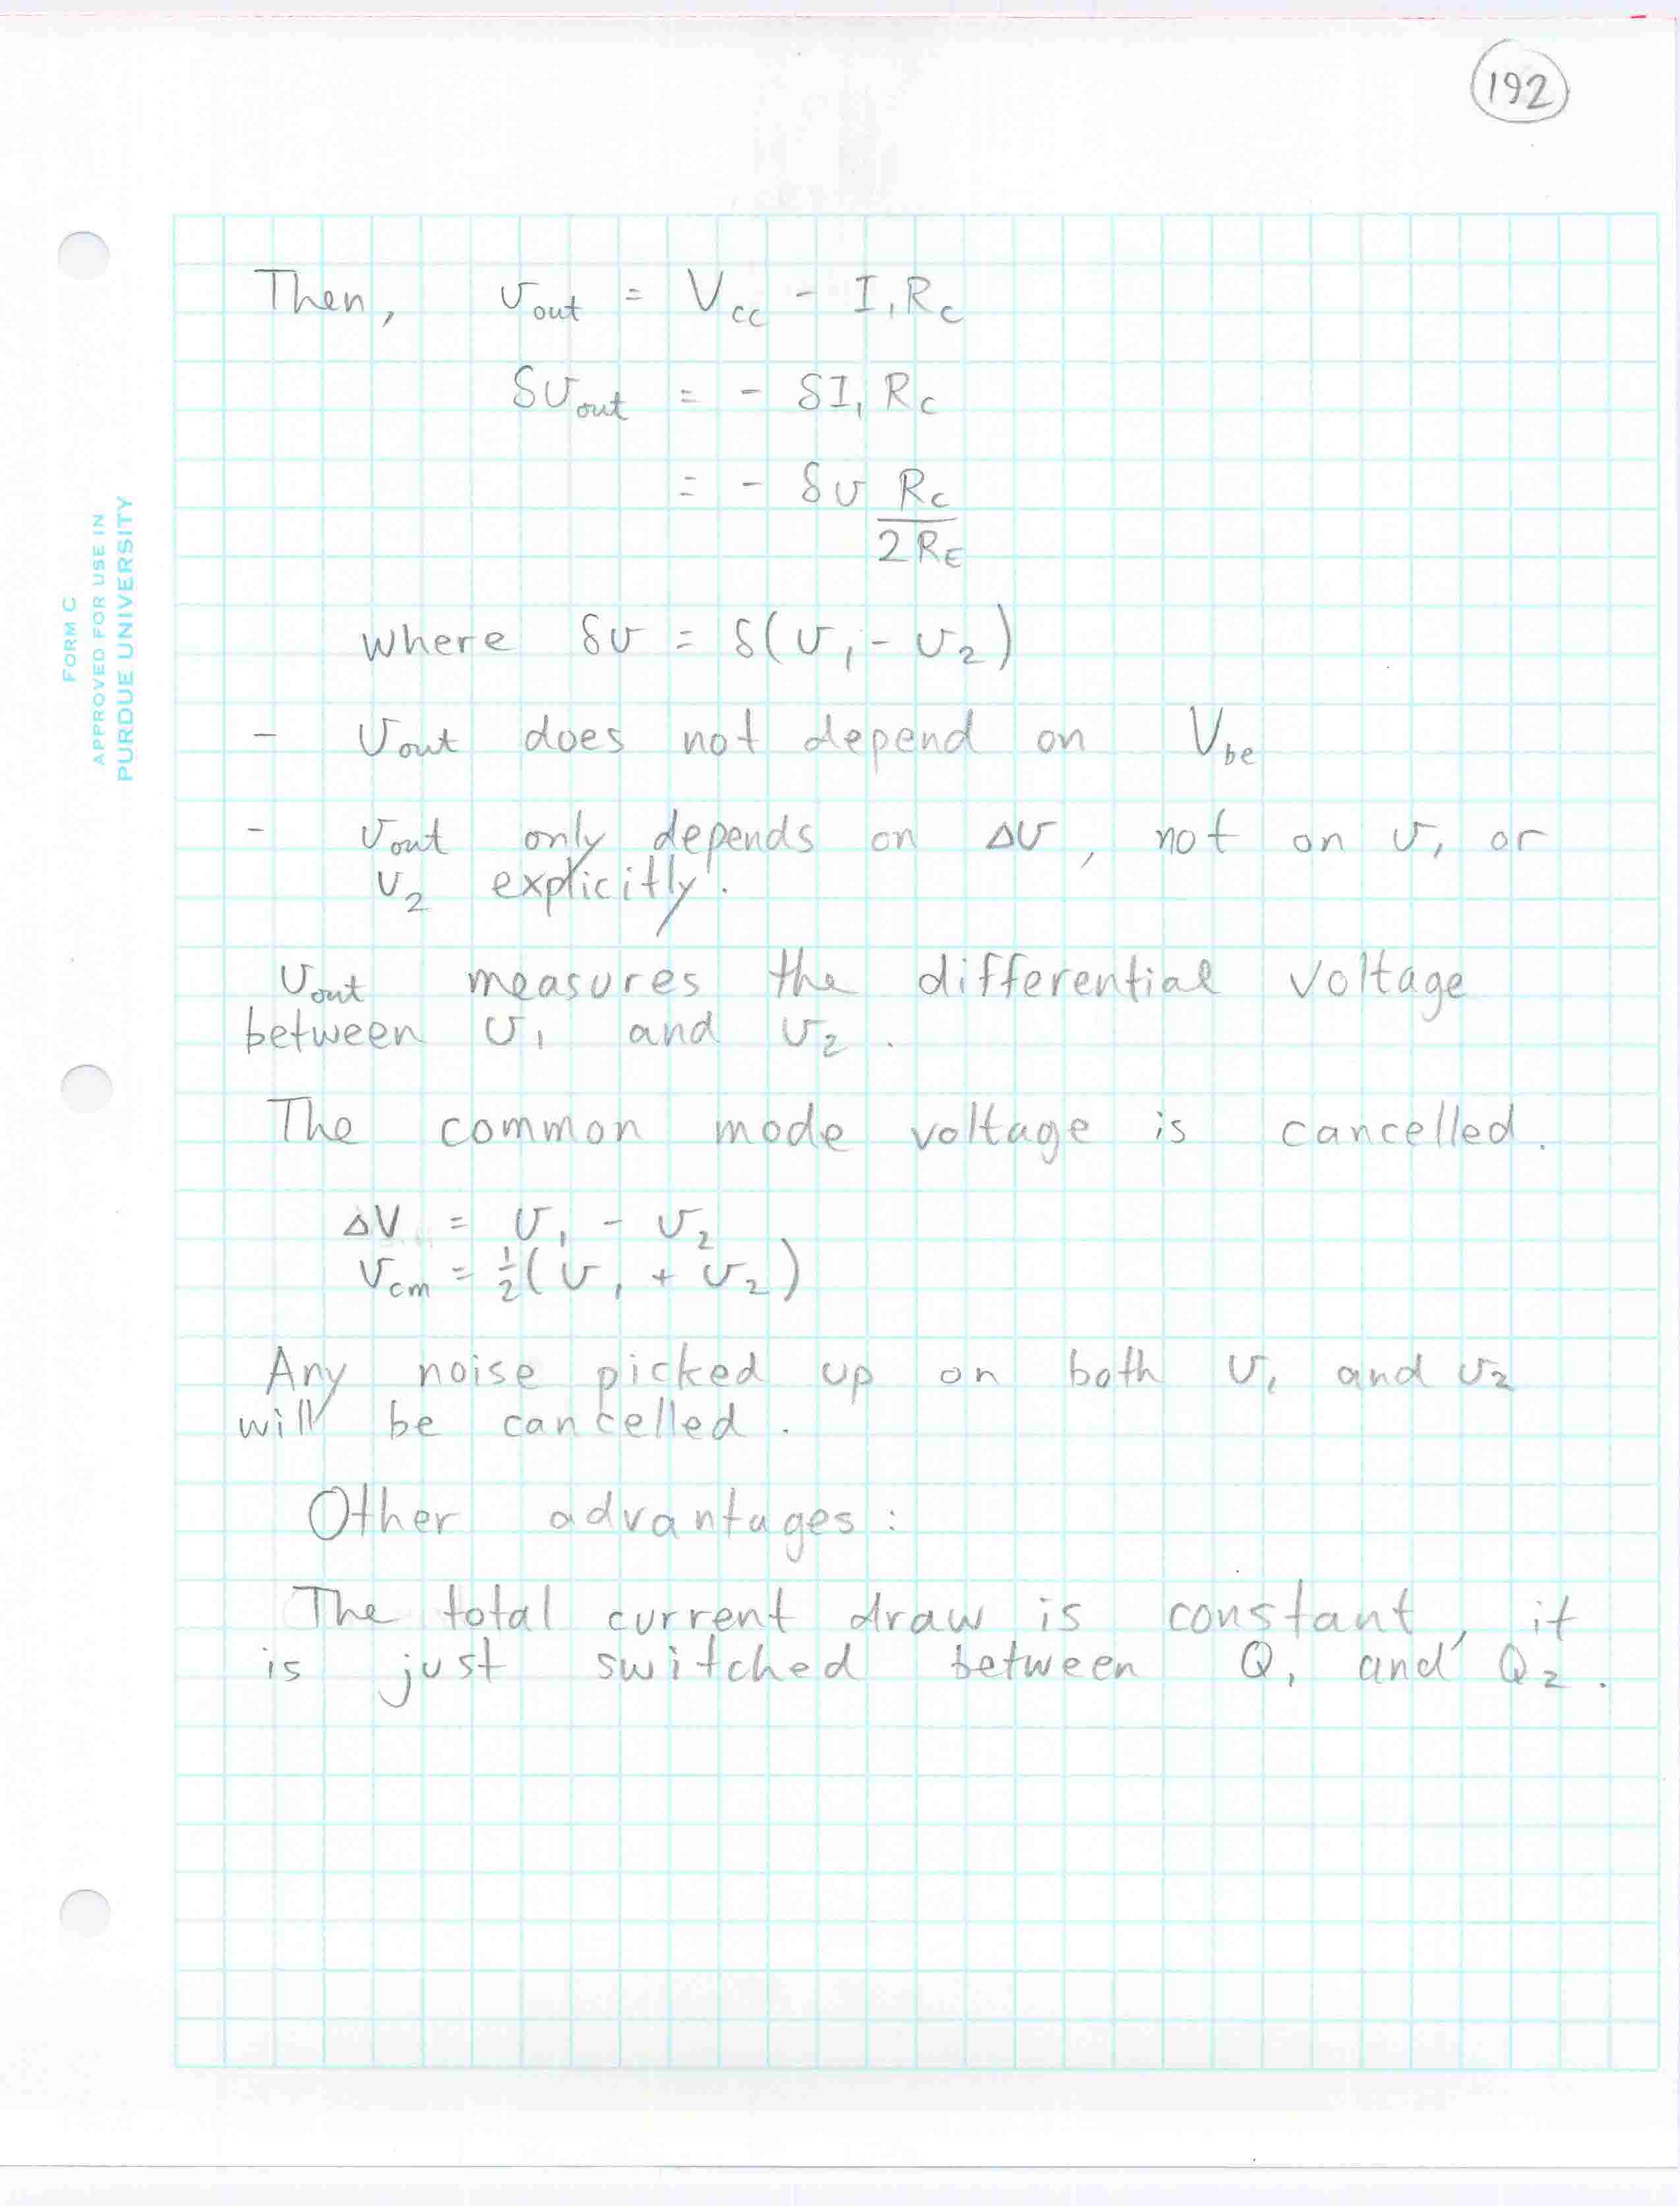 192
FORM C
APPROVED FOR USE IN
PURDUE UNIVERSITY
Then, v_out = V_cc - I_1 R_C
δv_out = - δI_1 R_C
= - δv R_C / 2R_E
where δv = δ(v_1 - v_2)
- v_out does not depend on V_be
- v_out only depends on Δv, not on v_1 or
v_2 explicitly.
v_out measures the differential voltage
between v_1 and v_2.
The common mode voltage is cancelled.
ΔV = v_1 - v_2
v_cm = ½(v_1 + v_2)
Any noise picked up on both v_1 and v_2
will be cancelled.
Other advantages:
The total current draw is constant, it
is just switched between Q_1 and Q_2.